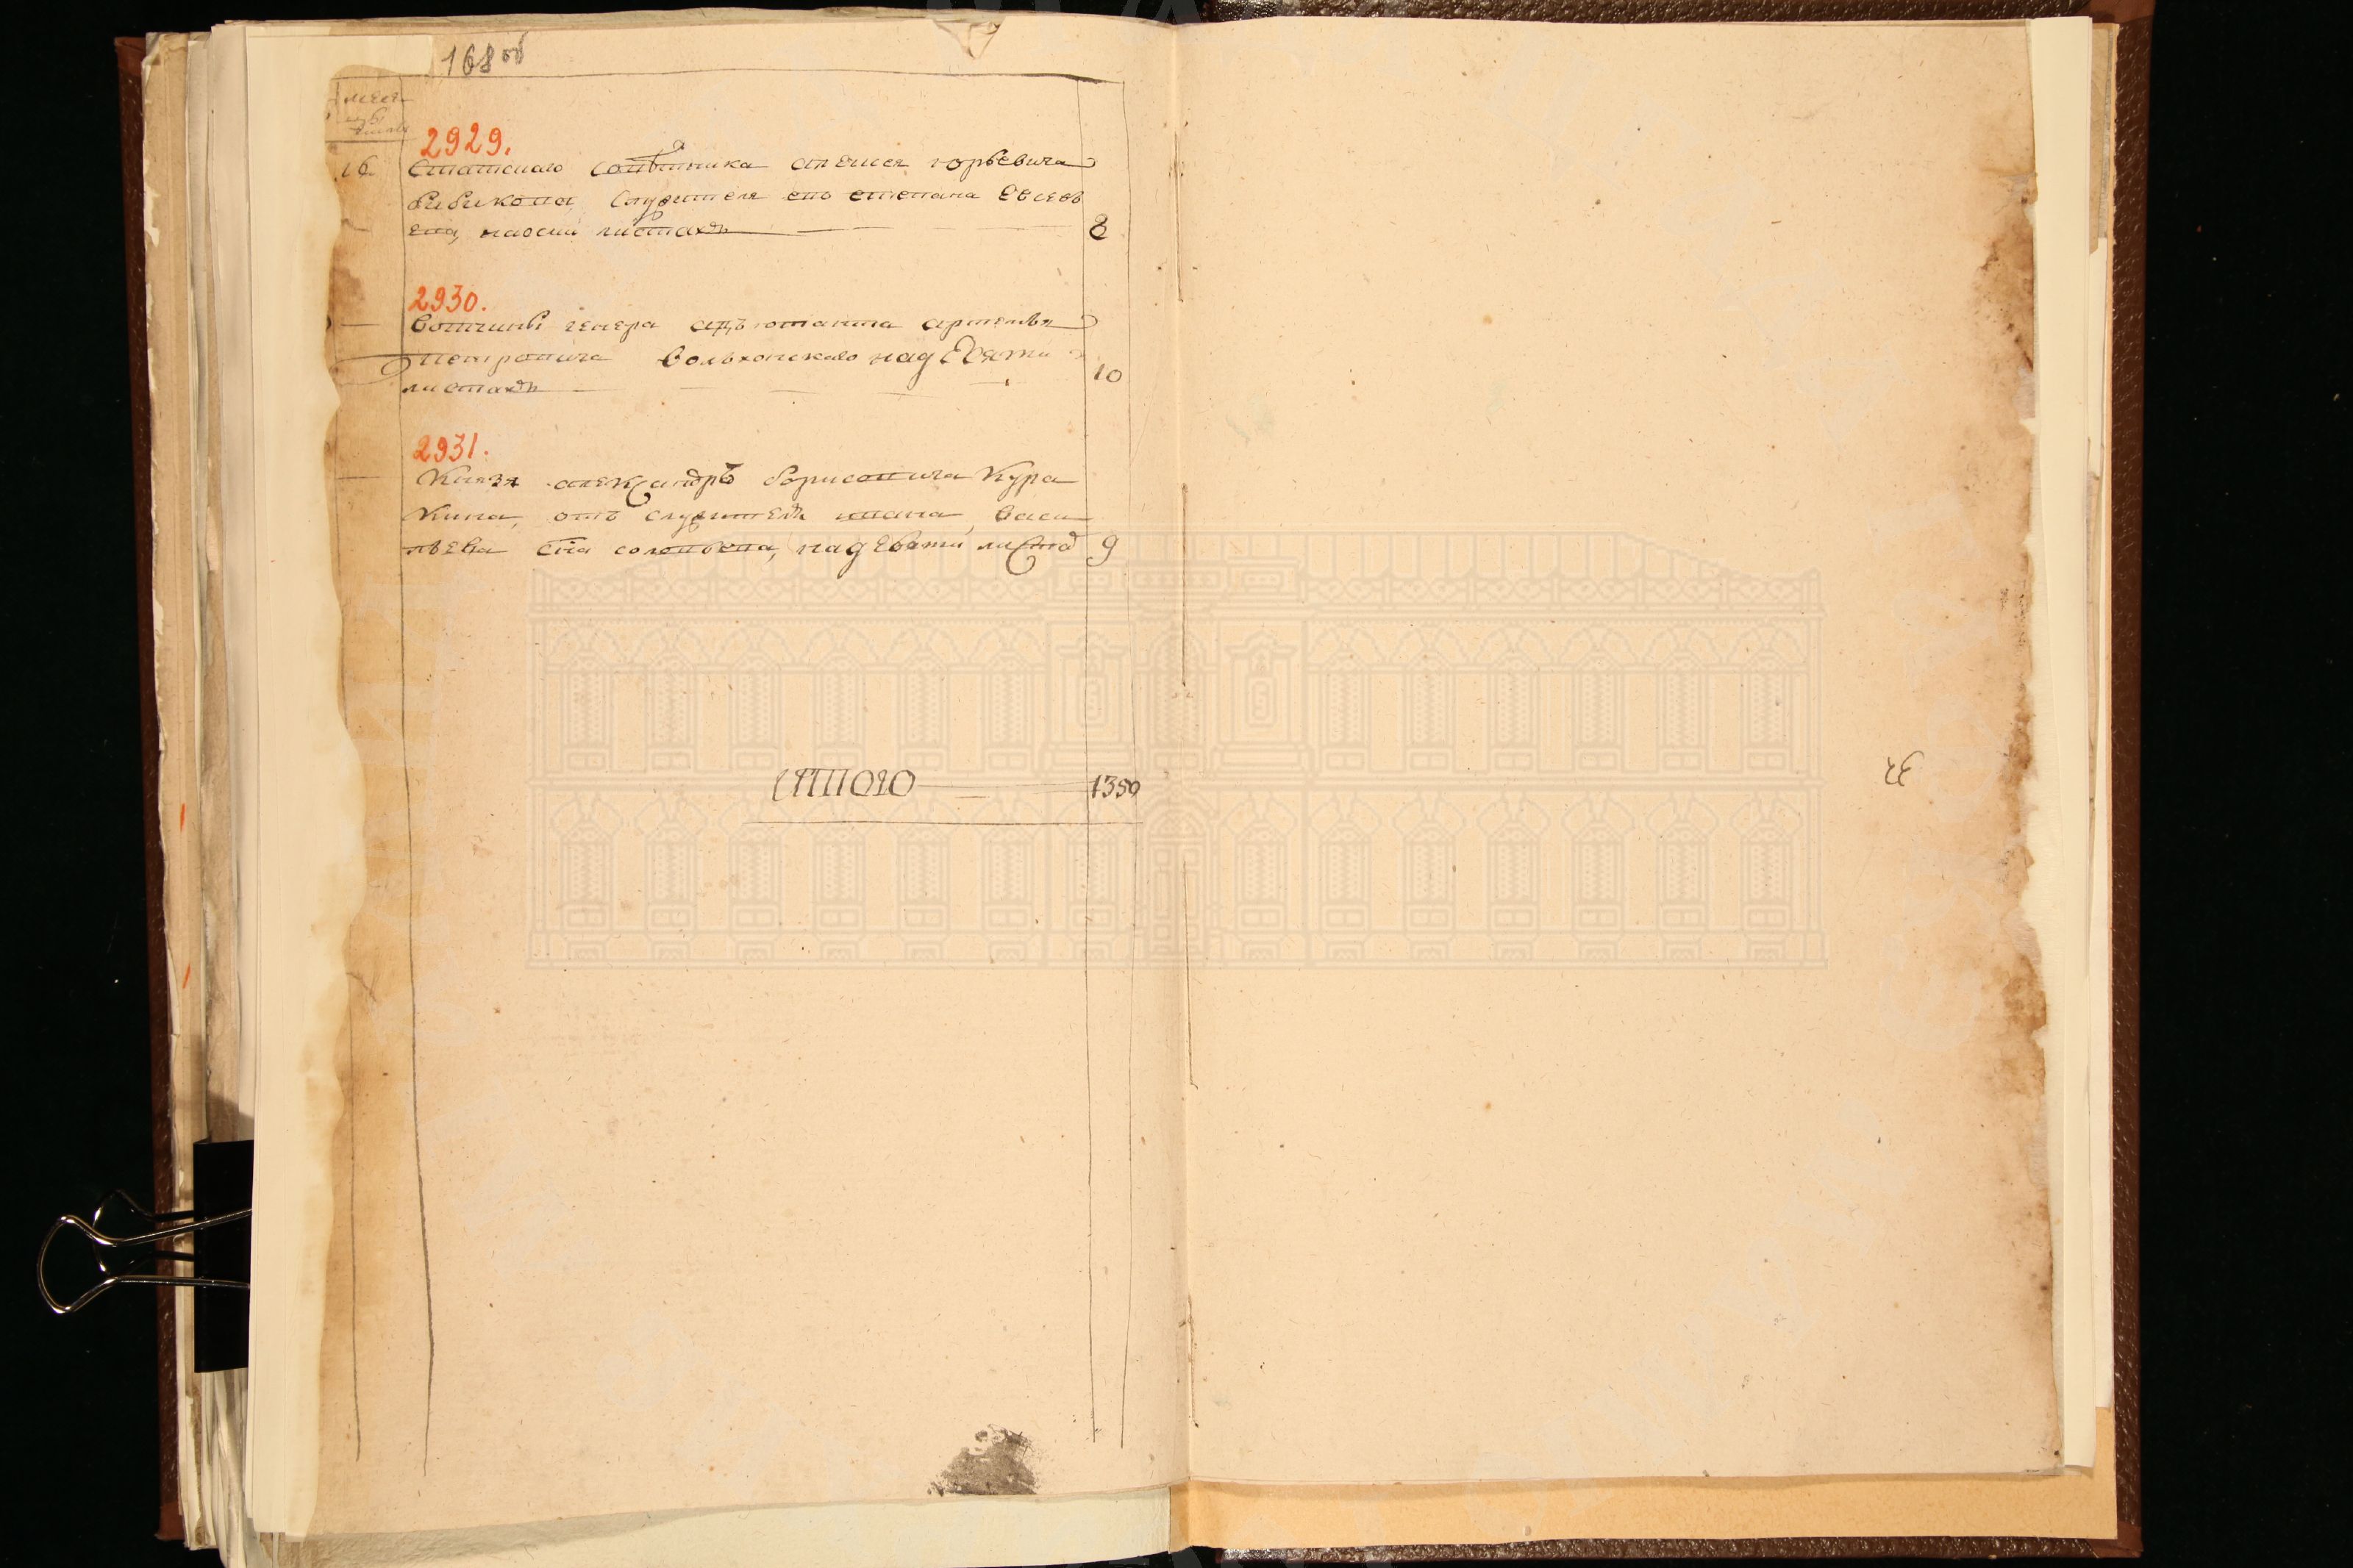 168 об
меся
числа
2929.
16. Статского советника алексея юрьевича
бибикова, служителя ево степана Евсевь
ева, наосми листахъ 8
2930.
вотчины генера адъютанта артемья
петровича волынскаго надевяти
листахъ 10
2931.
Князя александръ борисовича Кура
кина, отъ служителя ивана васи
льева сна соловьева, надевяти листа 9
итого 1350